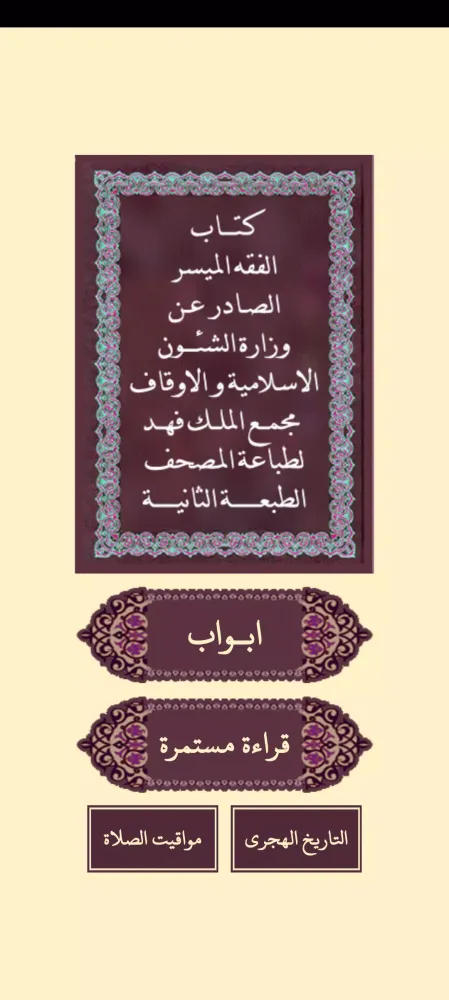 كتاب
الفقه الميسر
الصادر عن
وزارة الشئون
الاسلامية و الاوقاف
مجمع الملك فهد
لطباعة المصحف
الطبعة الثانية
ابواب
قراءة مستمرة
التاريخ الهجرى
مواقيت الصلاة